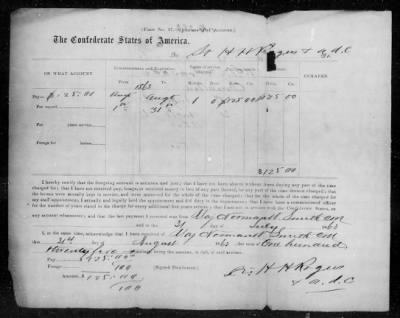 (FORM No. 17. OFFICERS' PAY ACCOUNT.)
The Confederate States of America,
To H H Rogers A D C Dr.
ON WHAT ACCOUNT.
COMMENCEMENT AND EXPIRATION.
REMARKS.
From To Months. Days. Dolls. Cts. Dolls. Cts.
1863
Pay $125.00 Augt 1st Augt 31st 1 0 $125 00 $125 00
For
years service.
Forage for horses.
$125.00
I hereby certify that the foregoing account is accurate and just; that I have not been absent without leave during any part of the time
charged for; that I have not received pay, forage, or received money in lieu of any part thereof, for any part of the time therein charged; that
the horses were actually kept in service, and were mustered for the whole of the time charged; that for the whole of the time charged for
my staff appointment, I actually and legally held the appointment and did duty in the department; that I have been a commissioned officer
for the number of years stated in the charge for every additional five years service; that I am not in arrears with the Confederate States, on
any account whatsoever; and that the last payment I received was from Maj
and to the 31 day of July 1863
I, at the same time, acknowledge that I have received of Maj
this 31st day of August 1863 One hundred
twenty five dollars, being the amount, in full, of said account.
Pay $125.00
Forage
Amount $125.00
(Signed Duplicates.)
H H Rogers
A D C